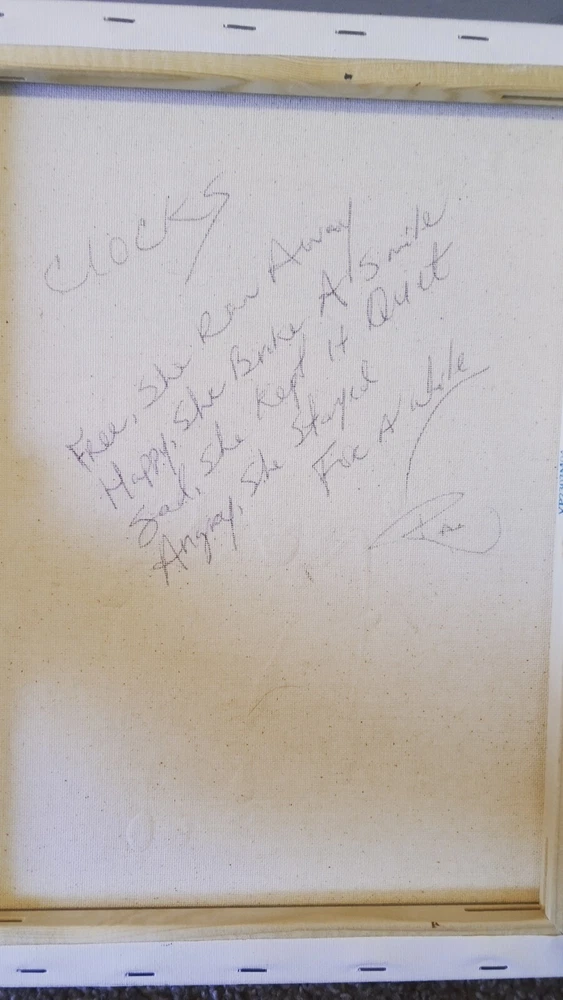 ClOCKS
Free, She Ran Away
Happy, She Broke A Smile
Sad, She Kept It Quiet
Angry, She Stayed
For A While